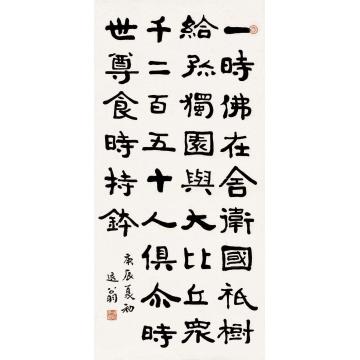 一時佛在舍衛國祇樹
給孤獨園與大比丘眾
千二百五十人俱尒時
世尊食時持鉢
庚辰夏初
遠翁